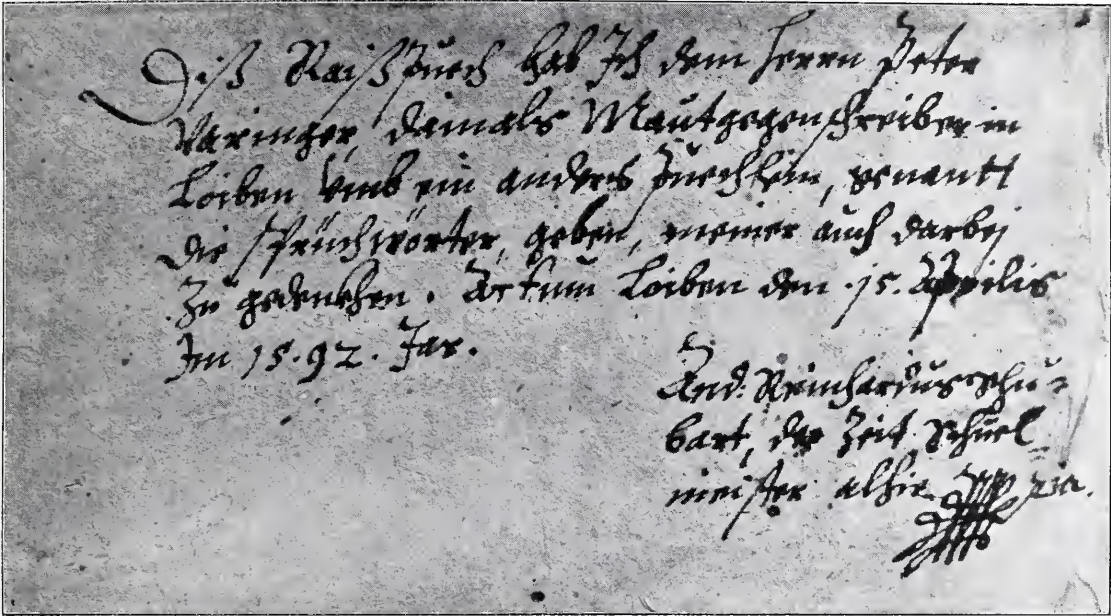 Diß Raißpuech hab Ich dem herrn Peter
Váringer, damals Mautgegenschreiber in
Loiben vmb ein anders puechlein, genantt
die sprüchwörter, geben, meiner auch darbej
Zu gedenckhen. Actum Loiben den .15. Aprilis
Im 15.92. Jar.
And: Reinhardus Schu=
bart, der Zeit Schuel
meister alhie